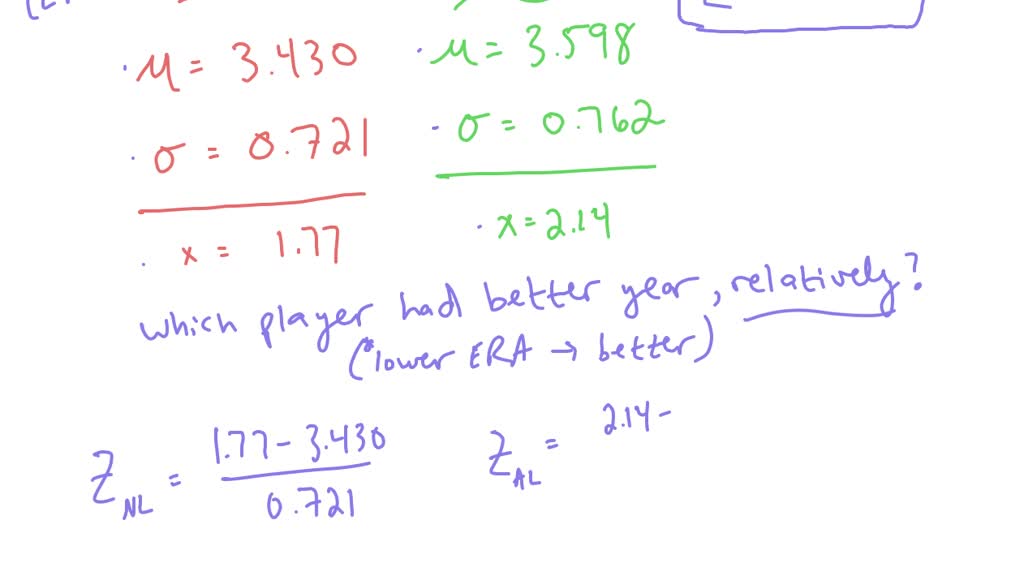 · μ = 3.430
· μ = 3.598
· σ = 0.721
· σ = 0.762
· x = 1.77
· x = 2.14
which player had better year, relatively?
(*lower ERA → better)
Z_NL = (1.77 - 3.430) / 0.721
Z_AL = 2.14 -